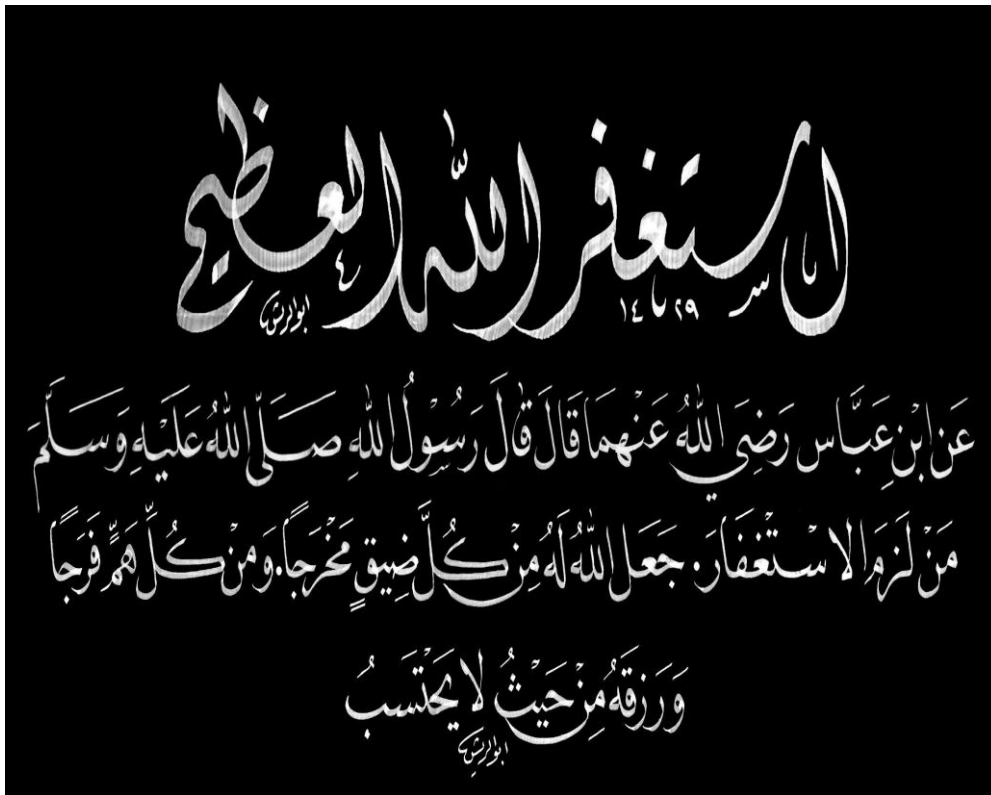 استغفر الله العظيم
١٤٢٩
ابو الريش
عَنِ ابْنِ عَبَّاس رَضِيَ اللهُ عَنْهمَا قَالَ قَالَ رَسُوْلُ اللهِ صَلَّى اللهُ عَلَيْهِ وَسَلَّمَ
مَنْ لَزِمَ الاسْتْغفَارَ. جَعَلَ اللهُ لَهُ مِنْ كُلِّ ضِيقٍ مَخْرَجاً. وَمنْ كُلِّ هَمٍّ فَرَجاً
وَرَزقَهُ مِنْ حَيْثُ لا يَحْتَسبُ
ابو الريش